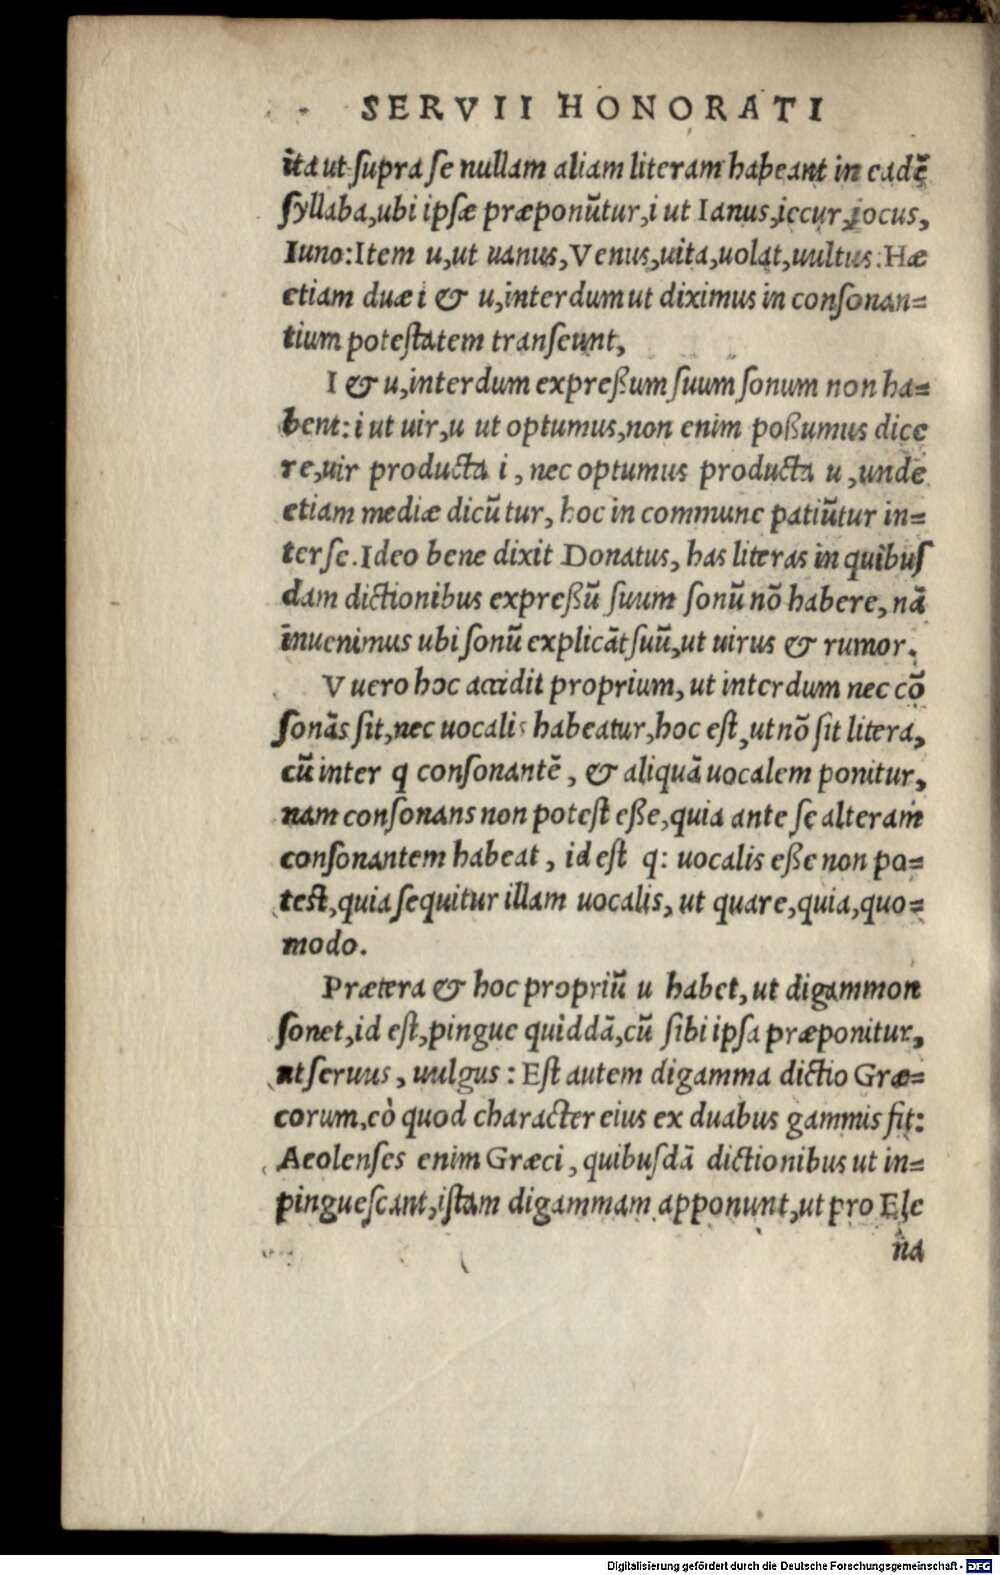 SERVII HONORATI
ita ut supra se nullam aliam literam habeant in eadē
syllaba, ubi ipsæ præponūtur, i ut Ianus, iecur, iocus,
Iuno: Item u, ut uanus, Venus, uita, uolat, uultus: Hæ
etiam duæ i & u, interdum ut diximus in consonan=
tium potestatem transeunt,
I & u, interdum expreßum suum sonum non ha=
bent: i ut uir, u ut optumus, non enim poßumus dice
re, uir producta i, nec optumus producta u, unde
etiam mediæ dicūtur, hoc in commune patiūtur in=
ter se. Ideo bene dixit Donatus, has literas in quibus
dam dictionibus expreßū suum sonū nō habere, nā
inuenimus ubi sonū explicāt suū, ut uirus & rumor.
V uero hoc accidit proprium, ut interdum nec cō
sonās sit, nec uocalis habeatur, hoc est, ut nō sit litera,
cū inter q consonantē, & aliquā uocalem ponitur,
nam consonans non potest eße, quia ante se alteram
consonantem habeat, id est q: uocalis eße non po=
test, quia sequitur illam uocalis, ut quare, quia, quo=
modo.
Prætera & hoc propriū u habet, ut digammon
sonet, id est, pingue quiddā, cū sibi ipsa præponitur,
ut seruus, uulgus: Est autem digamma dictio Græ=
corum, eò quod character eius ex duabus gammis fit:
Aeolenses enim Græci, quibusdā dictionibus ut in=
pinguescant, istam digammam apponunt, ut pro Ele
na
Digitalisierung gefördert durch die Deutsche Forschungsgemeinschaft - DFG